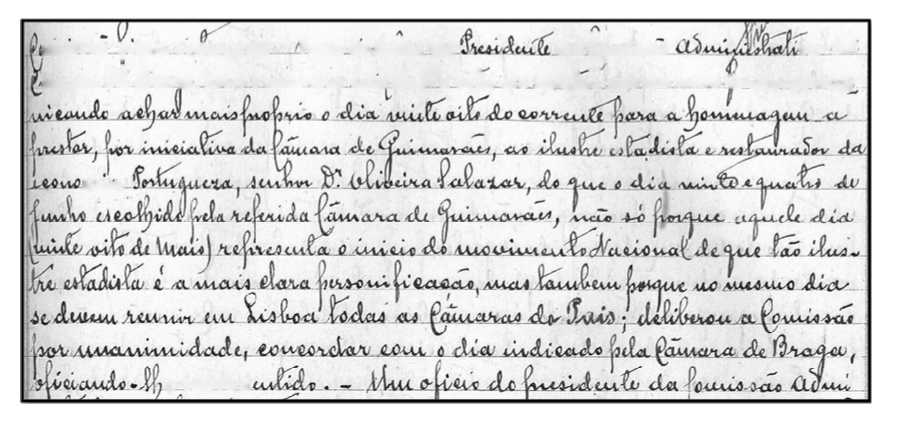 Presidente Administrati
nicando achar mais proprio o dia vinte oito do corrente para a homenagem a
prestar, por iniciativa da Câmara de Guimarães, ao ilustre estadista e restaurador da
Portugueza, senhor Dr. Oliveira Salazar, do que o dia vinte e quatro de
Junho escolhido pela referida Câmara de Guimarães, não só porque aquele dia
(vinte oito de Maio) representa o inicio do movimento Nacional de que tão ilus-
tre estadista é a mais clara personificação, mas tambem porque no mesmo dia
se devem reunir em Lisboa todas as Câmaras do Pais; deliberou a Comissão
por unanimidade, concordar com o dia indicado pela Câmara de Braga,
oficiando-lh entido. - Um oficio do presidente da Comissão Admi